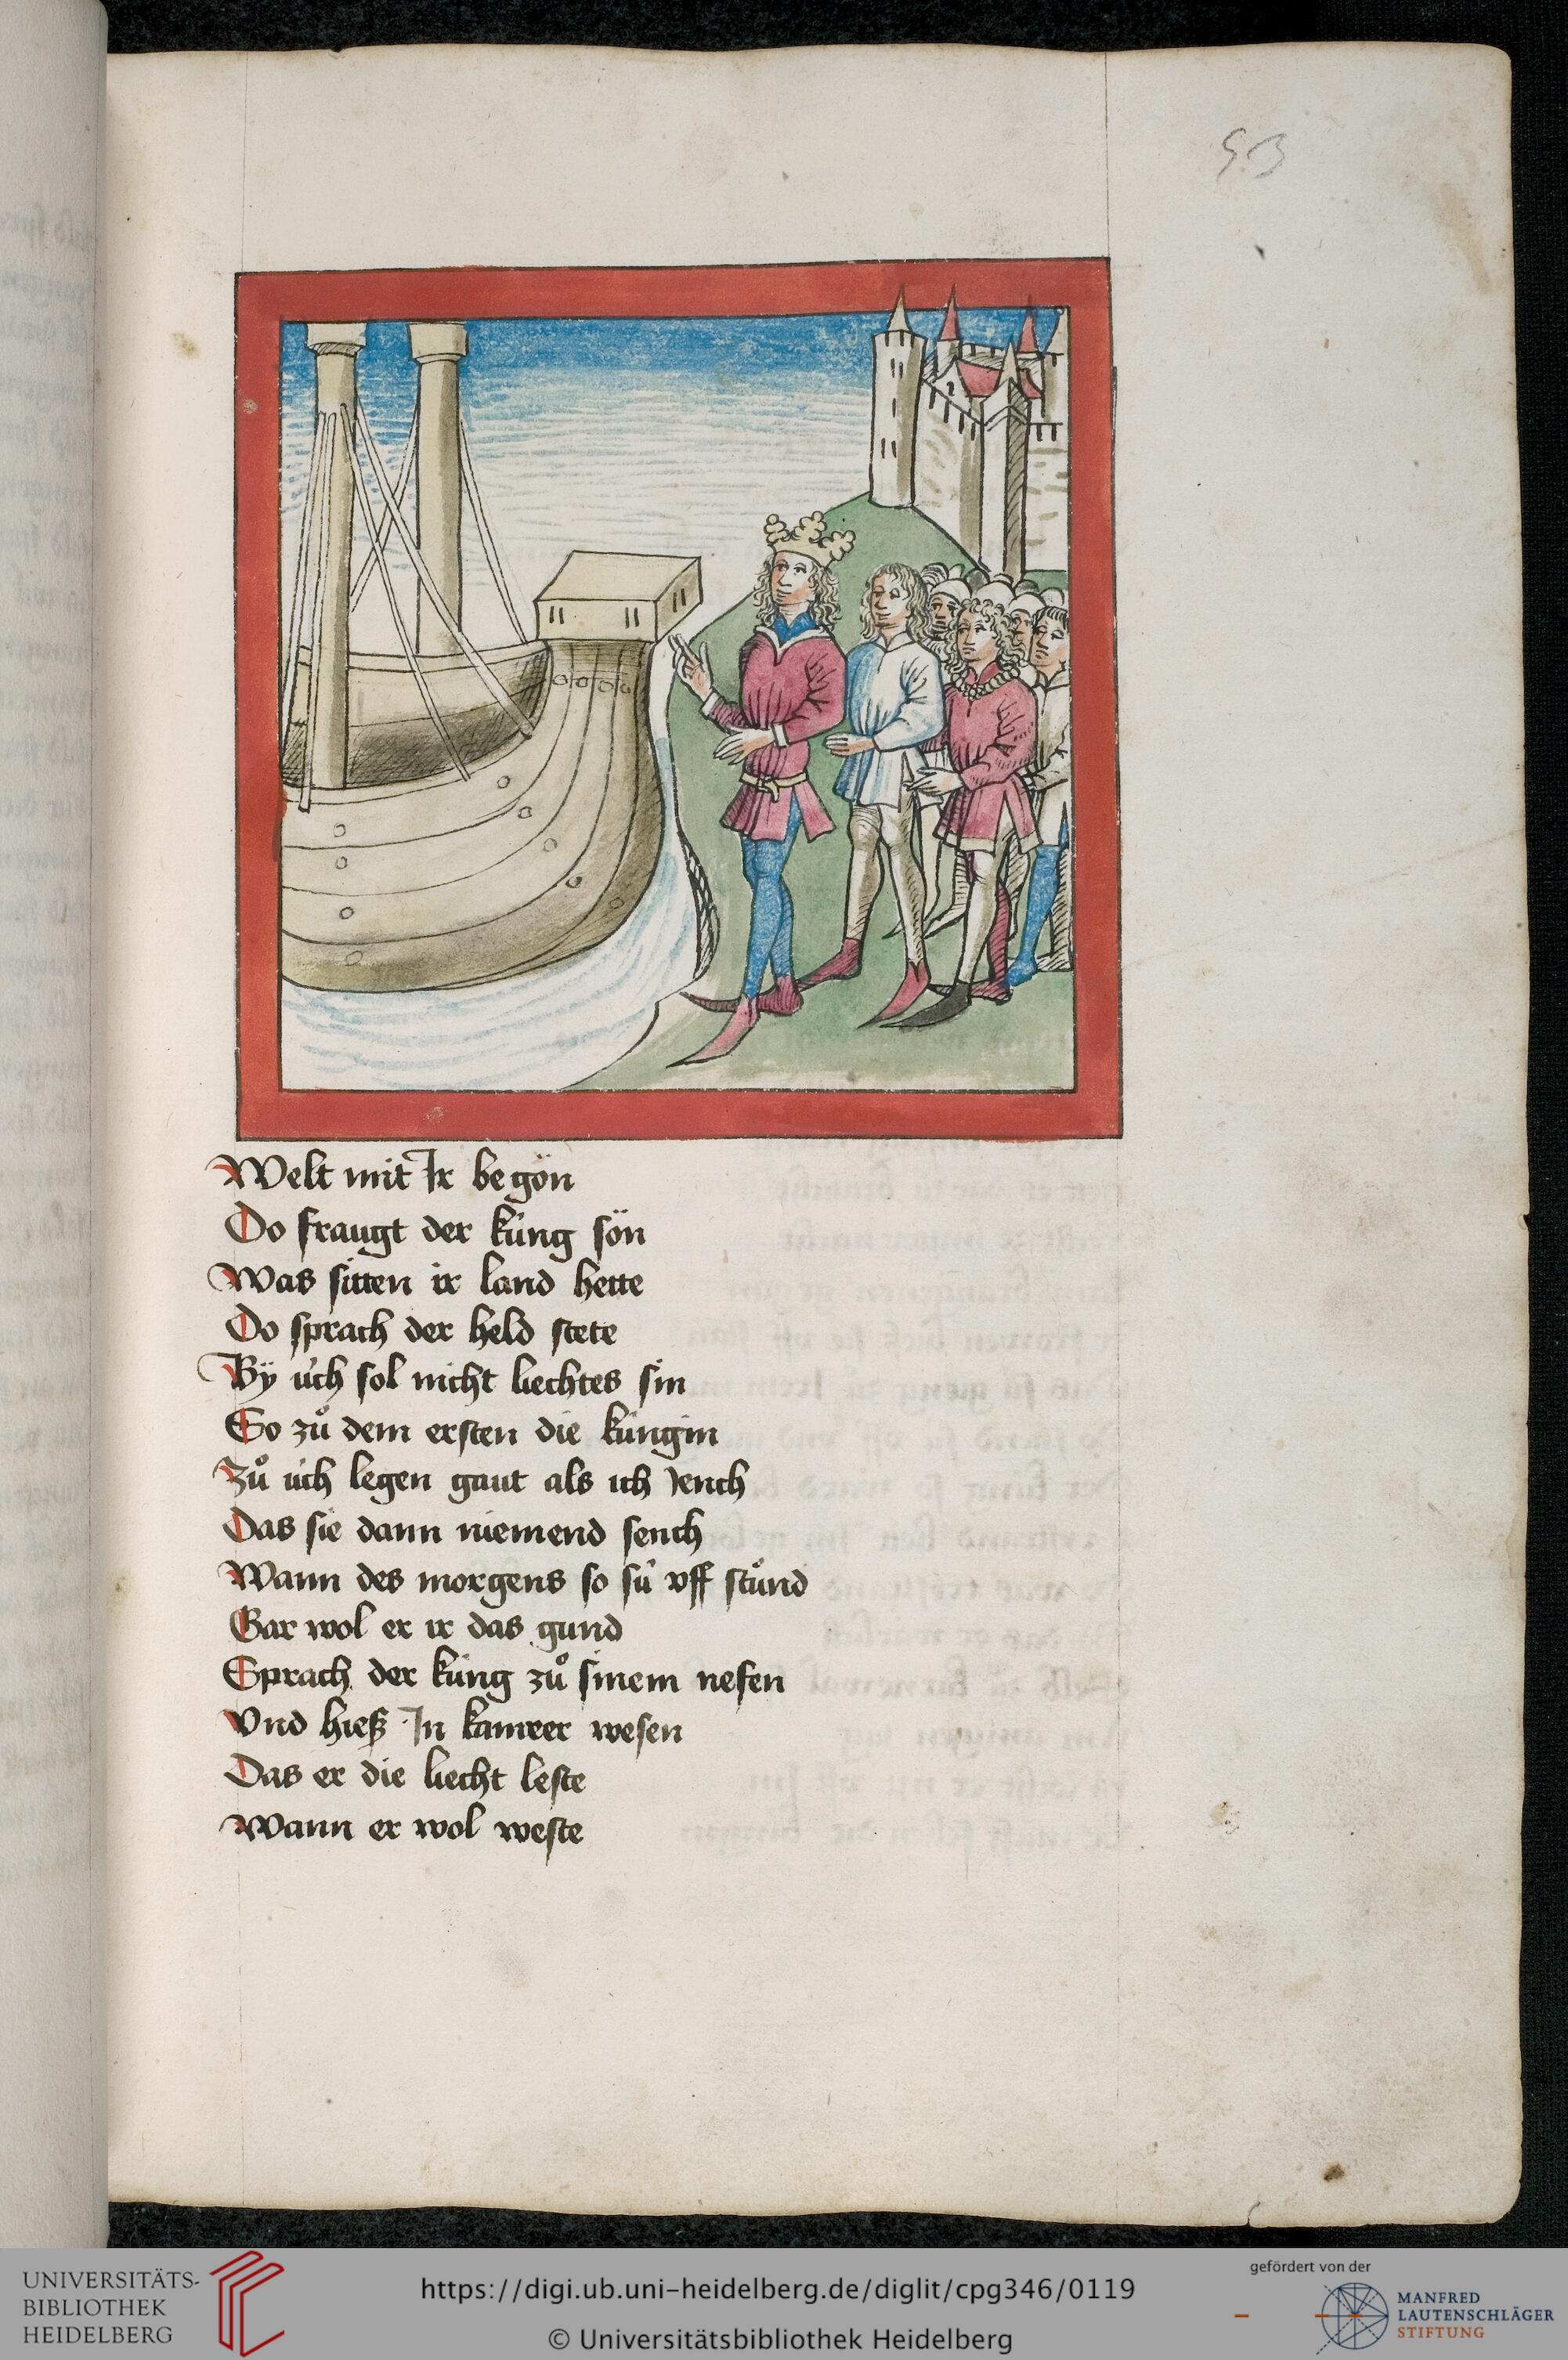 53
Welt mit Ir begön
Do fraugt der küng sön
Was sitten ir land hette
Do sprach der held stete
By üch sol nicht liechtes sin
So zuͦ dem ersten die küngin
Zuͦ üch legen gaut als ich Jench
Das sie dann niemend sench
Wann des morgens so sü vff stuͦnd
Gar wol er ir das gund
Sprach der küng zuͦ sinem nefen
Vnd hieß In kamrer wesen
Das er die liecht leste
Wann er wol weste
UNIVERSITÄTS-
BIBLIOTHEK
HEIDELBERG
https://digi.ub.uni-heidelberg.de/diglit/cpg346/0119
© Universitätsbibliothek Heidelberg
gefördert von der
MANFRED
LAUTENSCHLÄGER
STIFTUNG